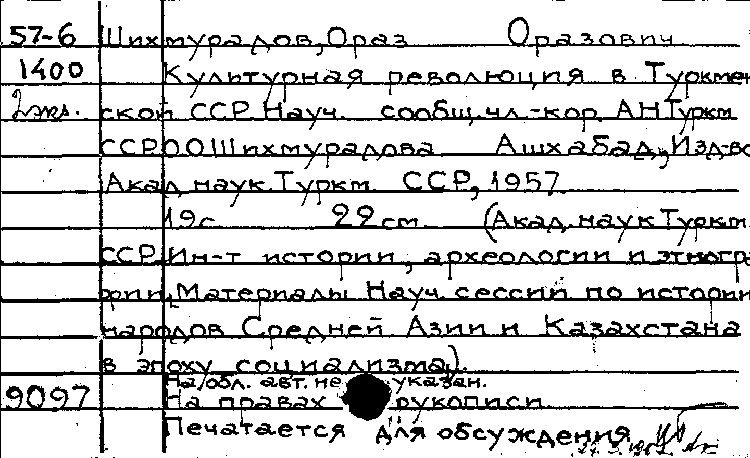 57-6 Шихмурадов, Ораз Оразович
1400 Культурная революция в Туркмен
2 экз. ской ССР. Науч. сообщ. чл.-кор. АН Туркм
ССР О.О. Шихмурадова Ашхабад, Изд-во
Акад. наук Туркм. ССР, 1957
19 с. 22 см. (Акад. наук Туркм.
ССР. Ин-т истории, археологии и этногра
фии. Материалы Науч. сессии по истории
народов Средней Азии и Казахстана
в эпоху социализма).
На обл. авт. не указан.
9097 На правах рукописи
Печатается для обсуждения